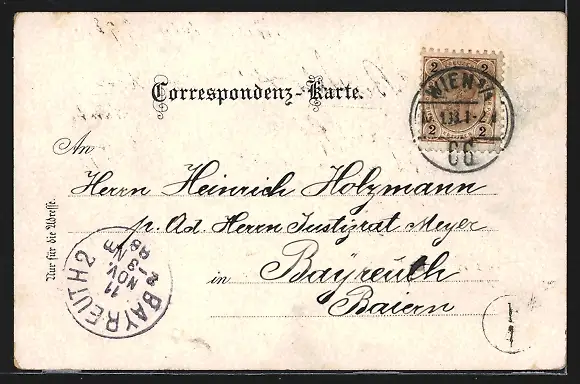 Correspondenz-Karte.
2 2
WIEN
2 2
66
An
Herrn Heinrich Holzmann
p. Ad. Herrn Justizrat Meyer
in Bayreuth
Baiern
Nur für die Adresse.
BAYREUTH 2
11
NOV.
2-3 Nm
98
1